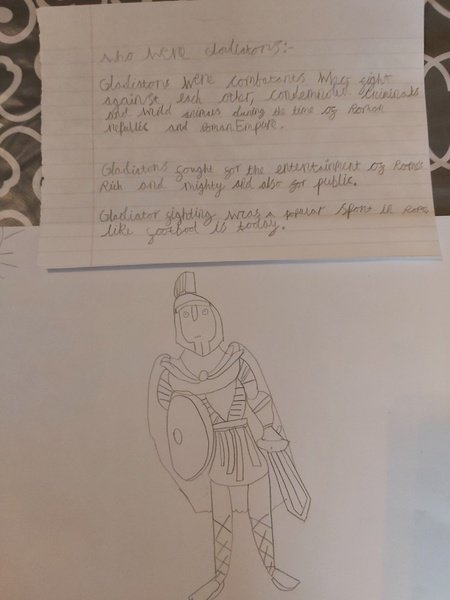 who were Gladiators:-
Gladiators were combatants who fight
against each other, condemned criminals
and wild animals during the time of Roman
Republics and Roman Empire.
Gladiators fought for the entertainment of Rome's
Rich and mighty and also for public.
Gladiator fighting was a popular sport in Rome
like football is today.